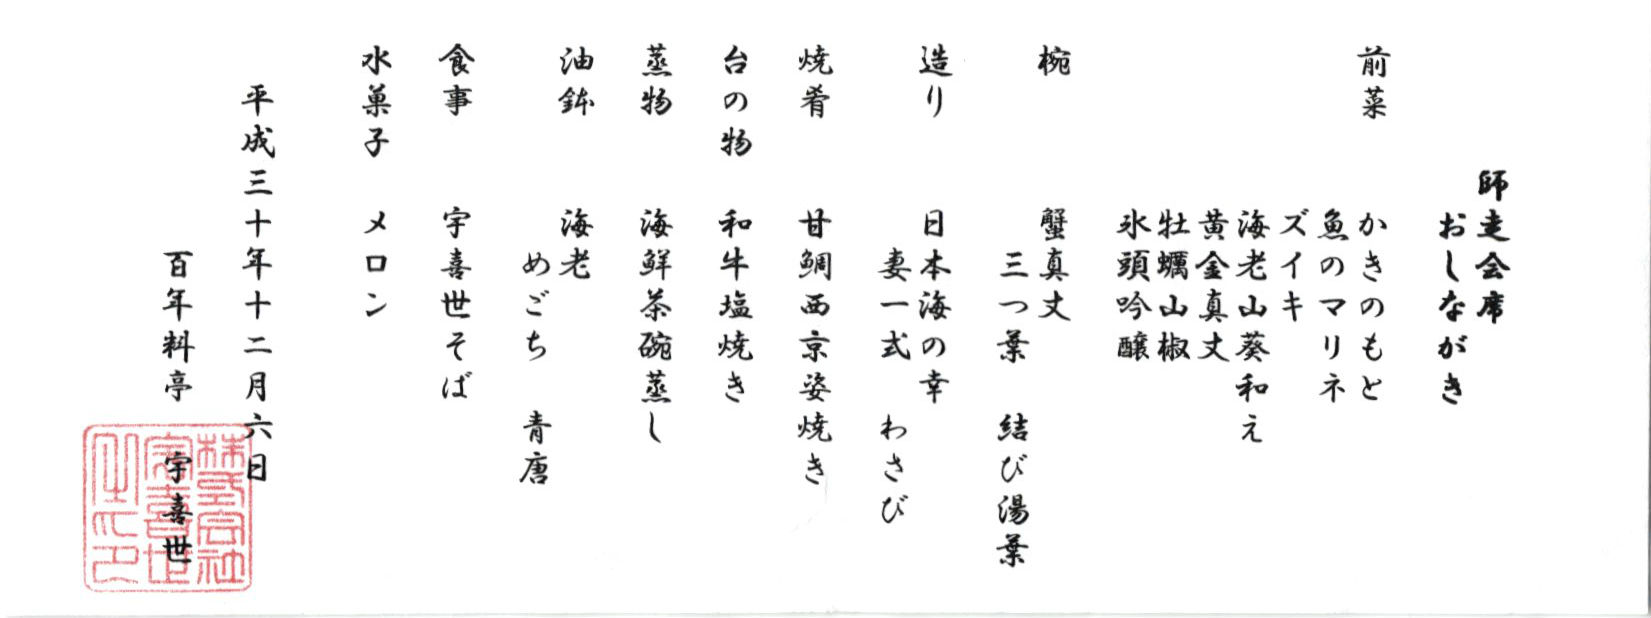 師走会席
おしながき
前菜 かきのもと
魚のマリネ
ズイキ
海老山葵和え
黄金真丈
牡蠣山椒
氷頭吟醸
椀 蟹真丈
三つ葉 結び湯葉
造り 日本海の幸
妻一式 わさび
焼肴 甘鯛西京姿焼き
台の物 和牛塩焼き
蒸物 海鮮茶碗蒸し
油鉢 海老
めごち 青唐
食事 宇喜世そば
水菓子 メロン
平成三十年十二月六日
百年料亭 宇喜世
株式会社
宇喜世
之印